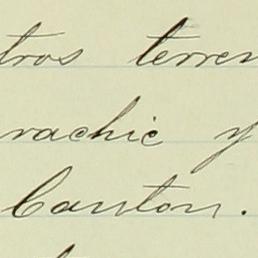 tros terren
rachic y
Canton.